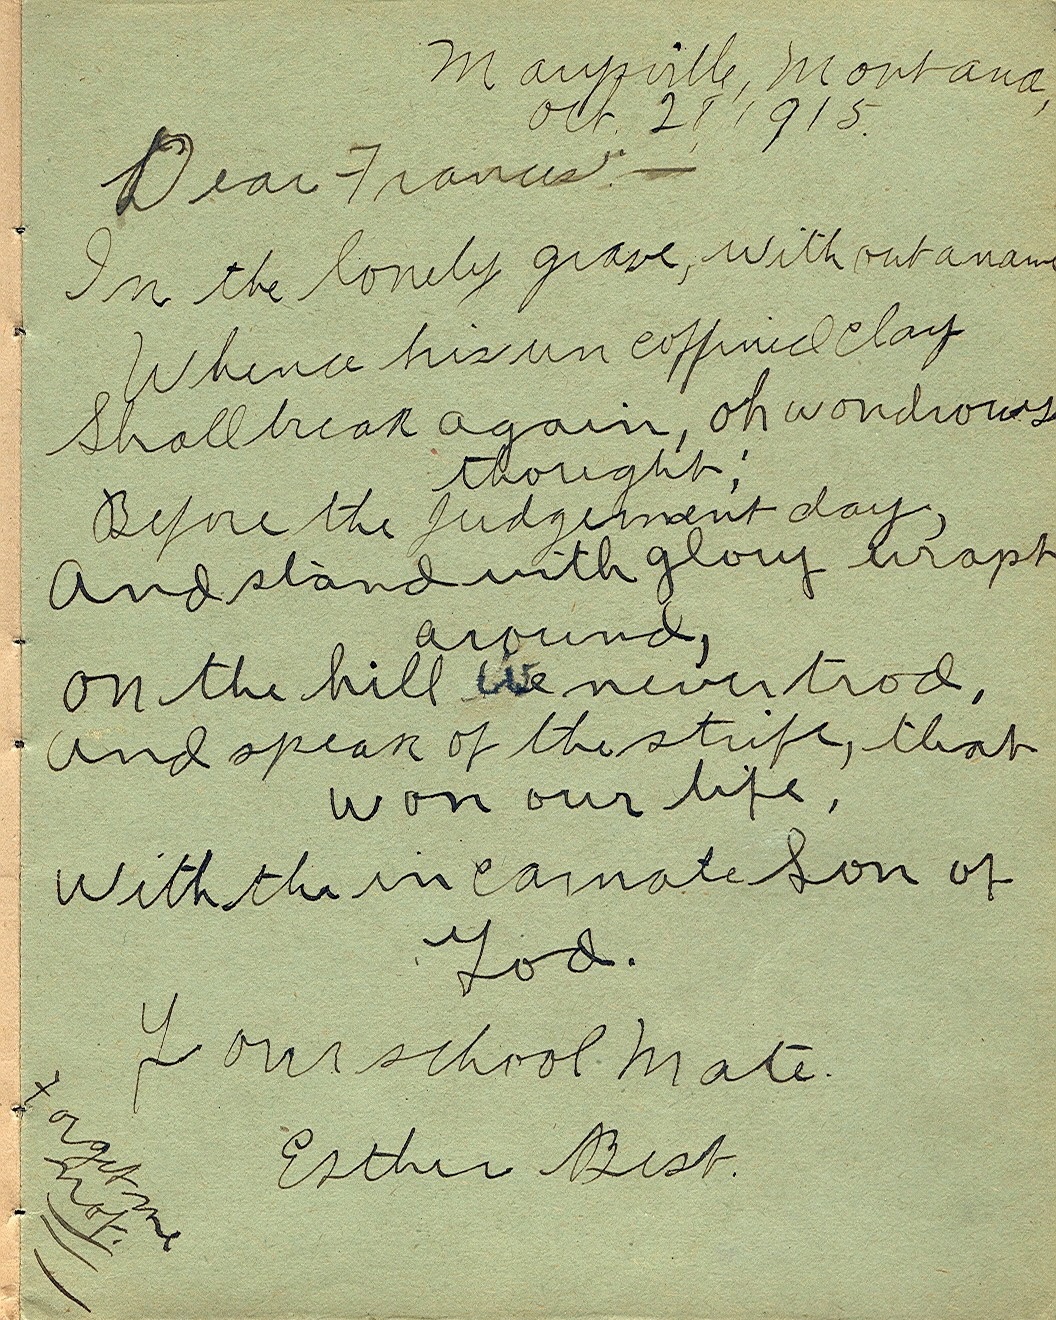 Marysville, Montana,
Oct. 27, 1915.
Dear Francis:—
In the lonely grave, with out a name
Whence his un coffined clay
Shall break again, oh wondrous
thought;
Before the judgement day,
And stand with glory wrapt
around,
On the hill we never trod,
And speak of the strife, that
won our life,
With the in carnate Son of
God.
Your school Mate.
Esther Best.
Forget me
not.